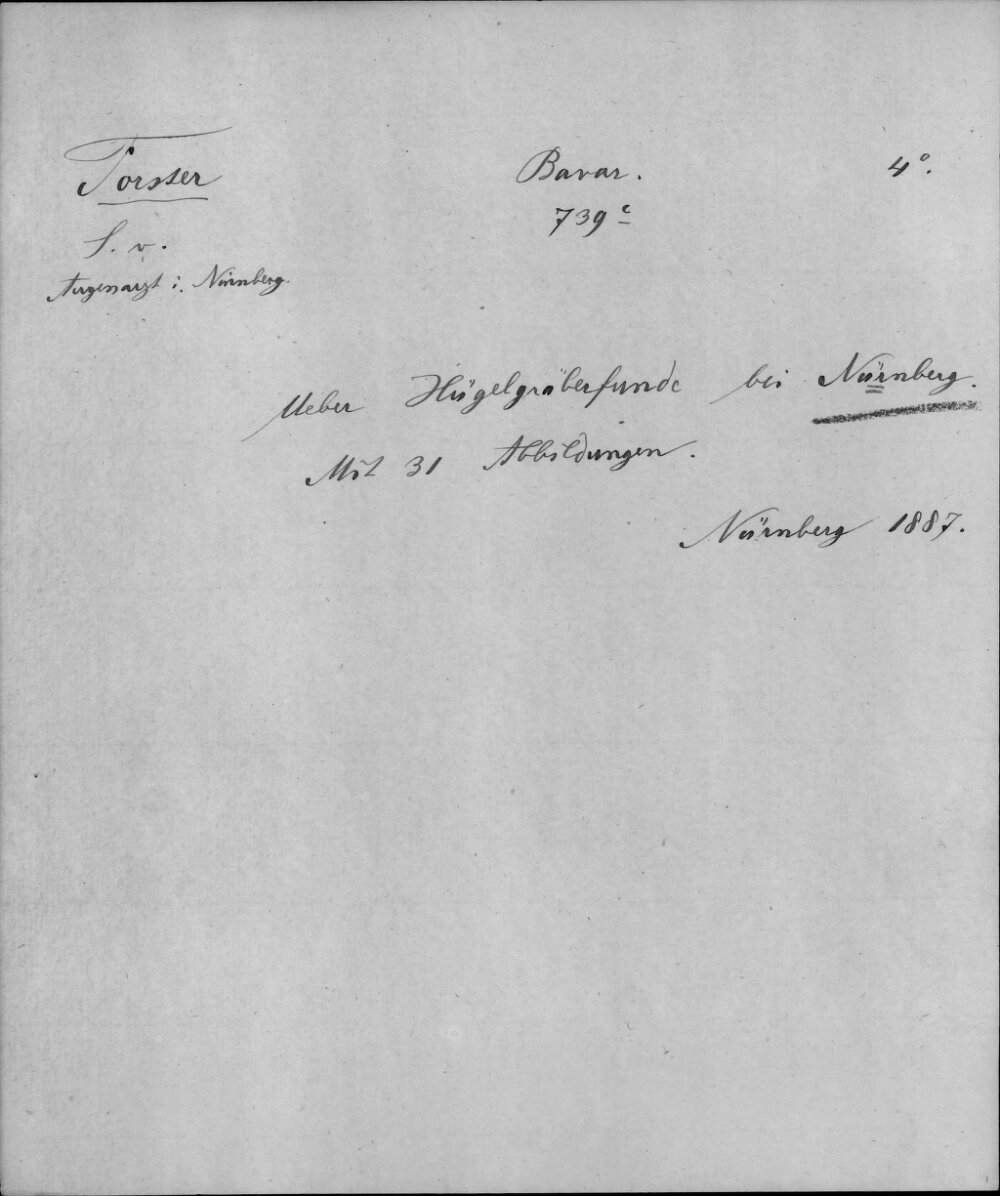 Forster Bavar. 4°.
739 c
S. v.
Augenarzt i. Nürnberg.
Ueber Hügelgräberfunde bei Nürnberg.
Mit 31 Abbildungen.
Nürnberg 1887.